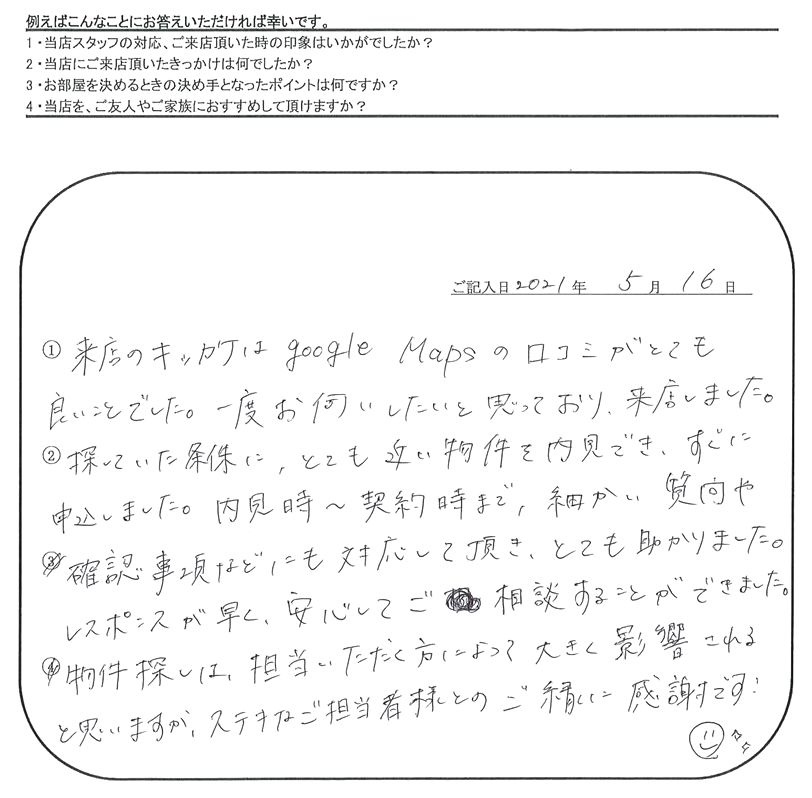 例えばこんなことにお答えいただければ幸いです。
1・当店スタッフの対応、ご来店頂いた時の印象はいかがでしたか？
2・当店にご来店頂いたきっかけは何でしたか？
3・お部屋を決めるときの決め手となったポイントは何ですか？
4・当店を、ご友人やご家族におすすめして頂けますか？
ご記入日2021年 5月 16日
① 来店のキッカケは google Mapsの口コミがとても
良いことでした。一度お伺いしたいと思っており、来店しました。
② 探していた条件に、とても近い物件を内見でき、すぐに
申込しました。内見時～契約時まで、細かい質問や
③ 確認事項などにも対応して頂き、とても助かりました。
レスポンスが早く、安心してご相談することができました。
④ 物件探しは、担当いただく方によって大きく影響される
と思いますが、ステキなご担当者様とのご縁に感謝です!